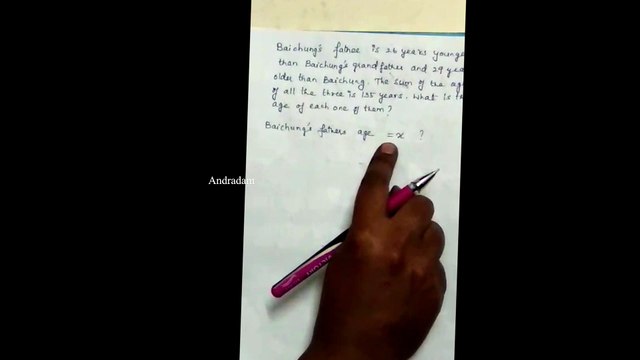 Baichung's father is 26 years younge
than Baichung's grandfather and 29 yea
older than Baichung. The sum of the age
of all the three is 135 years. What is th
age of each one of them?
Baichung's fathers age = x ?
Andradam